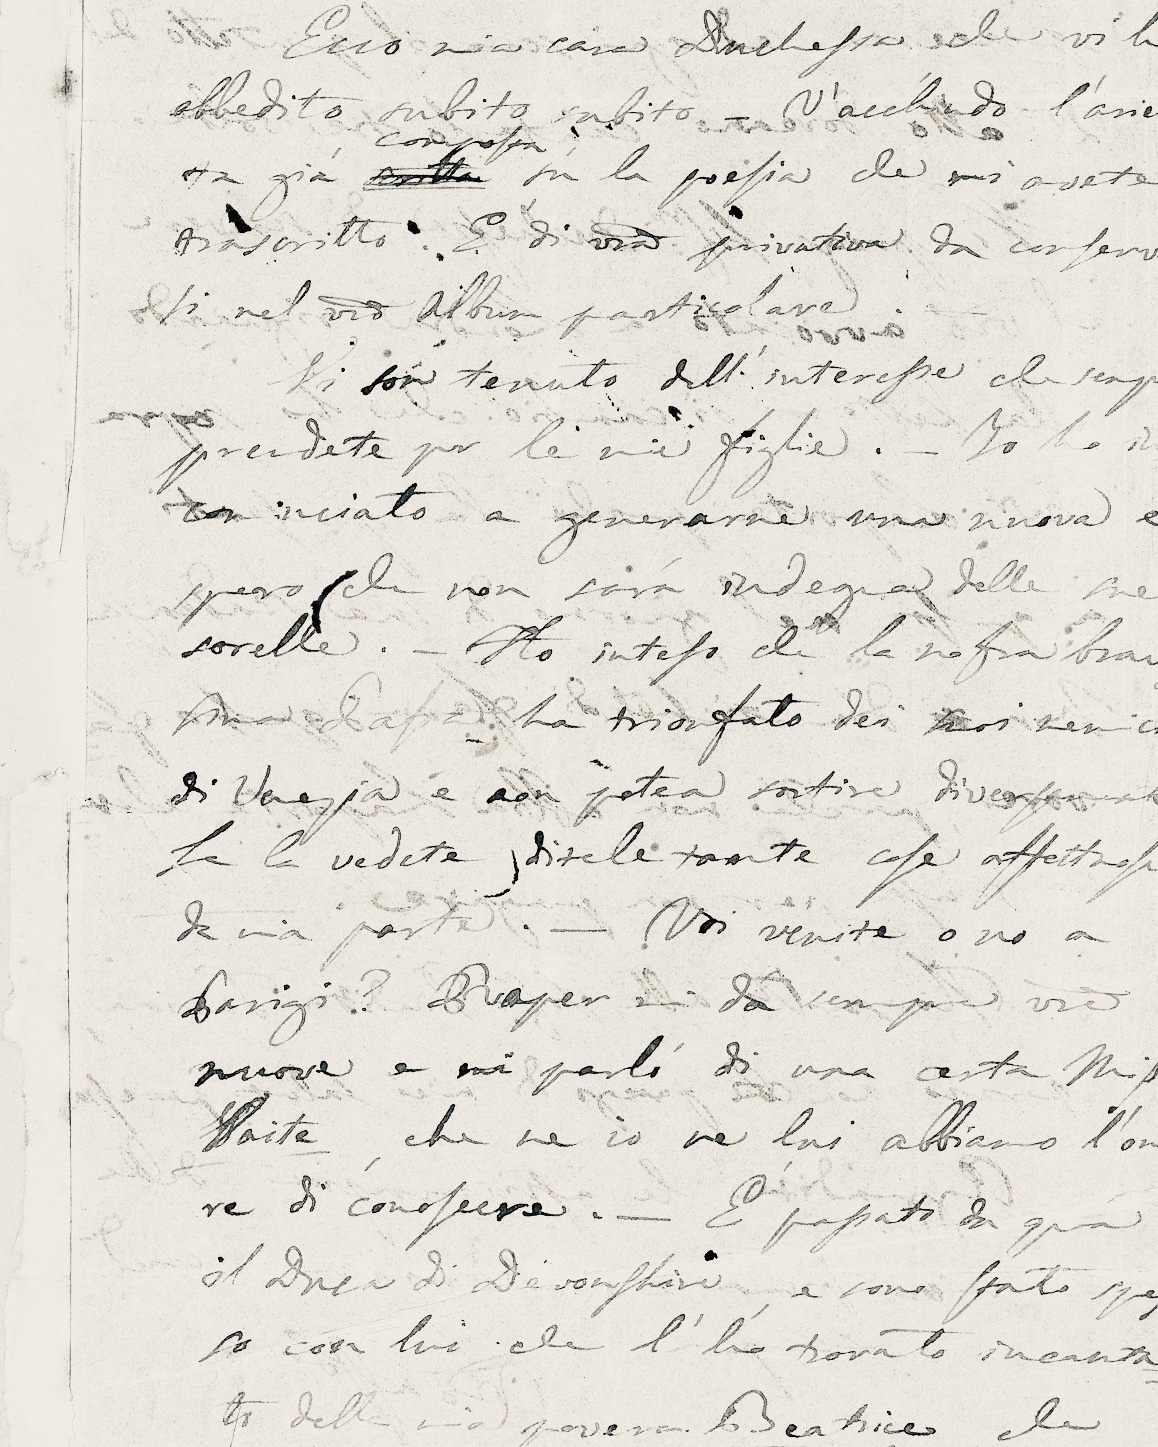 Ecco mia cara Duchessa che vi h
obbedito subito subito – V'acchiudo l'arie
tta già composta su la poesia che mi avete
trascritto. È di vra privativa da conserv
si nel vro Album particolare
Vi son tenuto dell'interesse che semp
prendete per le mie figlie. – Io ho in
cominciato a generarne una nuova e
spero che non sarà indegna delle sue
sorelle. – Ho inteso che la nostra brav
sima Pasta ha trionfato dei suoi nemici
di Venezia e non potea sortire diversamente
Se la vedete, ditele tante cose affettuose
da mia parte. – Voi venite o no a
Parigi? Draper mi dà sempre vre
nuove e mi parlò di una certa Miss
Waite, che ne io ne lui abbiamo l'on
re di conoscere. – È passato da quà
il Duca di Devonshire, e sono stato spes
so con lui che l'ho trovato incanta
to della mia povera Beatrice che